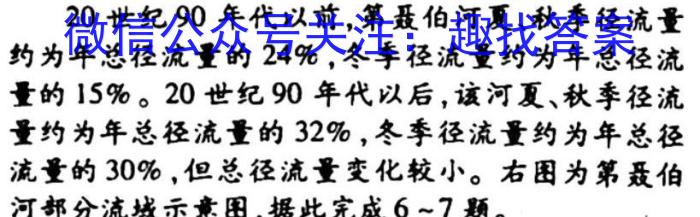 20世纪90年代以前,第聂伯河夏、秋季径流量
微信公众号关注：趣找答案
约为年总径流量的24%,冬季径流量约为年总径流
量的15%。20世纪90年代以后,该河夏、秋季径流
量约为年总径流量的32%,冬季径流量约为年总径
流量的30%,但总径流量变化较小。右图为第聂伯
河部分流域示意图,据此完成6~7题。